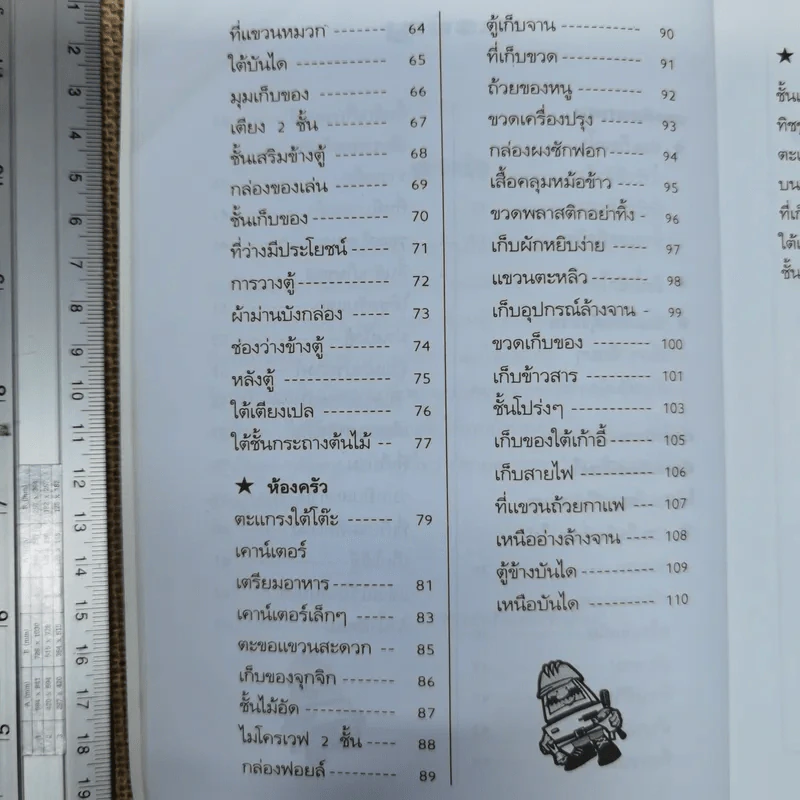 ที่แขวนหมวก -------- 64
ใต้บันได ------------- 65
มุมเก็บของ ---------- 66
เตียง 2 ชั้น --------- 67
ชั้นเสริมข้างตู้ -------- 68
กล่องของเล่น -------- 69
ชั้นเก็บของ ---------- 70
ที่ว่างมีประโยชน์ ----- 71
การวางตู้ ------------ 72
ผ้าม่านบังกล่อง ------ 73
ช่องว่างข้างตู้ -------- 74
หลังตู้ -------------- 75
ใต้เตียงเปล --------- 76
ใต้ชั้นกระถางต้นไม้ -- 77
★ ห้องครัว
ตะแกรงใต้โต๊ะ ------ 79
เคาน์เตอร์
เตรียมอาหาร -------- 81
เคาน์เตอร์เล็กๆ ------ 83
ตะขอแขวนสะดวก -- 85
เก็บของจุกจิก ------- 86
ชั้นไม้อัด ------------ 87
ไมโครเวฟ 2 ชั้น ---- 88
กล่องฟอยล์ --------- 89
ตู้เก็บจาน ----------- 90
ที่เก็บขวด ----------- 91
ถ้วยของหนู --------- 92
ขวดเครื่องปรุง ------- 93
กล่องผงซักฟอก ----- 94
เสื้อคลุมหม้อข้าว ---- 95
ขวดพลาสติกอย่าทิ้ง - 96
เก็บผักหยิบง่าย ----- 97
แขวนตะหลิว --------- 98
เก็บอุปกรณ์ล้างจาน - 99
ขวดเก็บของ -------- 100
เก็บข้าวสาร --------- 101
ชั้นโปร่งๆ ----------- 103
เก็บของใต้เก้าอี้ ------ 105
เก็บสายไฟ --------- 106
ที่แขวนถ้วยกาแฟ --- 107
เหนืออ่างล้างจาน ---- 108
ตู้ข้างบันได ---------- 109
เหนือบันได --------- 110
★